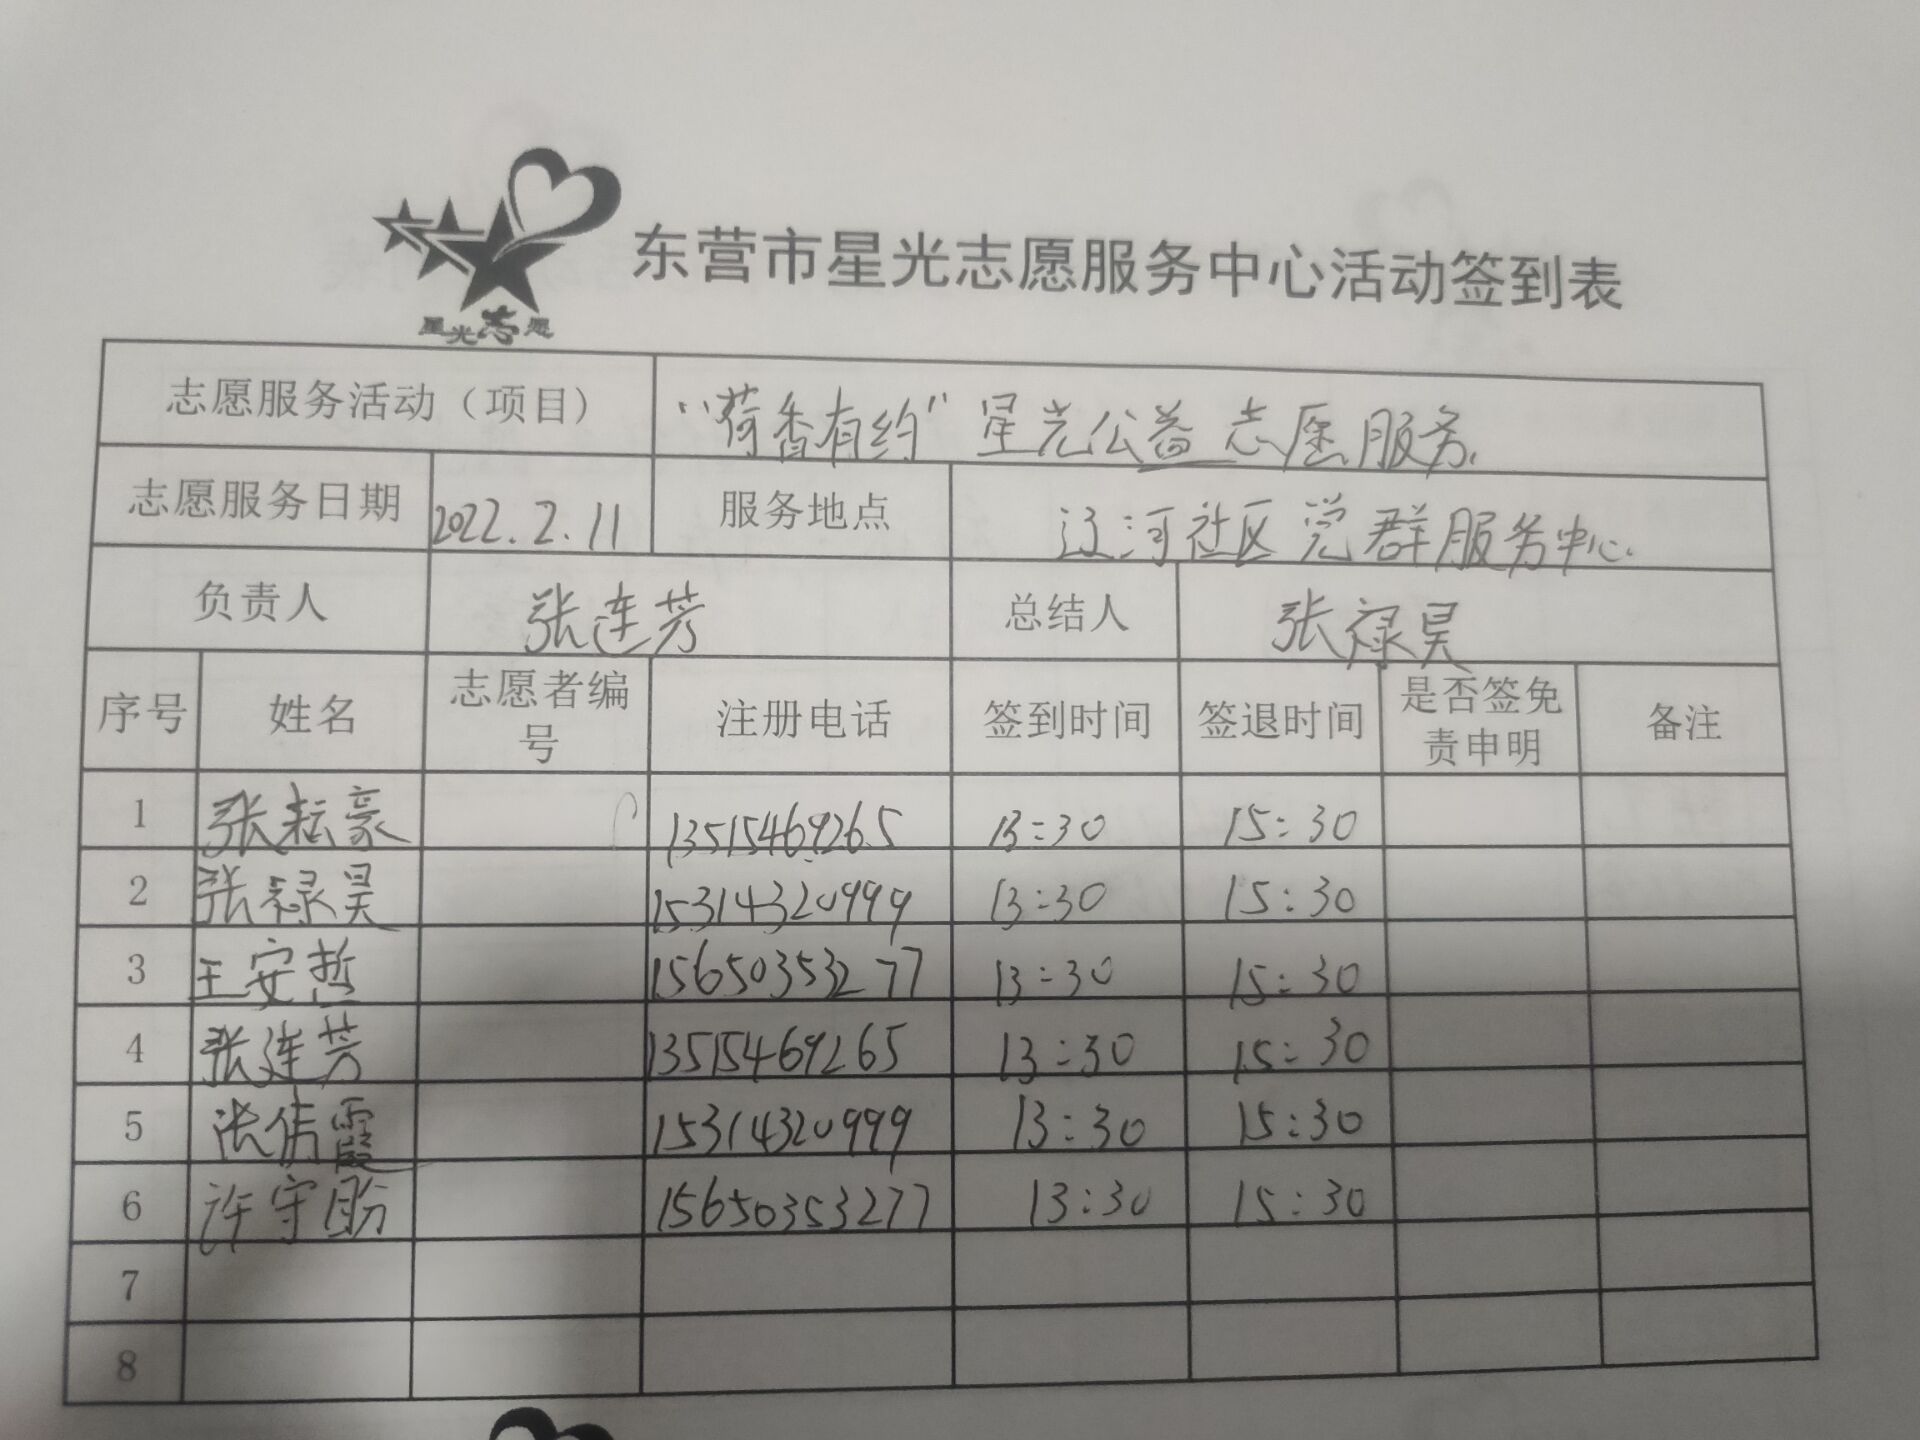 星光志愿
东营市星光志愿服务中心活动签到表
志愿服务活动（项目） “荷香有约”星光公益志愿服务.
志愿服务日期 2022.2.11 服务地点 辽河社区党群服务中心.
负责人 张连芳 总结人 张禄昊
序号 姓名 志愿者编号 注册电话 签到时间 签退时间 是否签免责申明 备注
1 张耘豪 13515469265 13:30 15:30
2 张禄昊 15314320999 13:30 15:30
3 王安哲 15650353277 13:30 15:30
4 张连芳 13515469265 13:30 15:30
5 张倩霞 15314320999 13:30 15:30
6 许守盼 15650353277 13:30 15:30
7
8